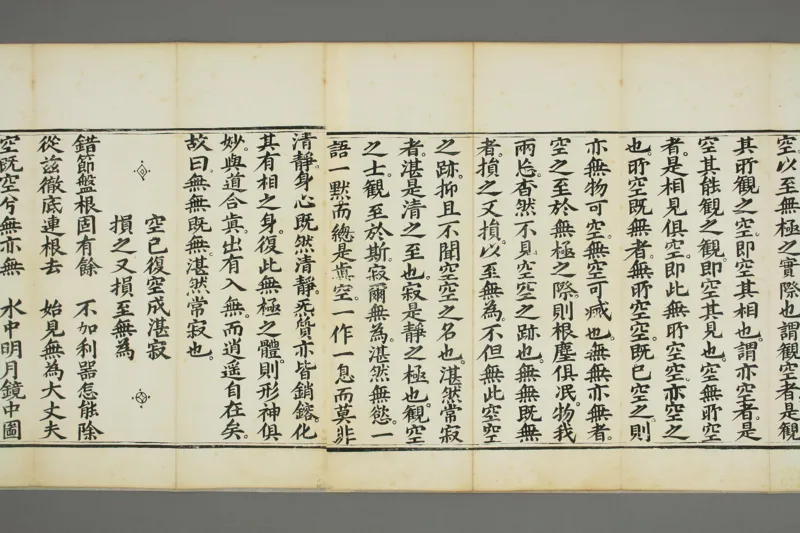 空以至無極之實際也謂觀空者是觀
其所觀之空即空其相也謂亦空者是
空其能觀之觀即空其見也空無所空
者是相見俱空即此無所空空亦空之
也所空既無者無所空空既已空之則
亦無物可空無空可㓕也無無亦無者
空之至於無極之際則根塵俱泯物我
兩忘杳然不見空空之跡也無無既無
者損之又損以至無為不但無此空空
之跡抑且不聞空空之名也湛然常寂
者湛是清之至也寂是靜之極也觀空
之士觀至於斯寂爾無為湛然無慾一
語一默而總是真空一作一息而莫非
清靜身心既然清靜炁質亦皆銷鎔化
其有相之身復此無極之體則形神俱
妙與道合真出有入無而逍遥自在矣
故曰無無既無湛然常寂也
空已復空成湛寂
損之又損至無為
錯節盤根固有餘　不加利器怎能除
從兹徹底連根去　始見無為大丈夫
空既空兮無亦無　水中明月鏡中圖